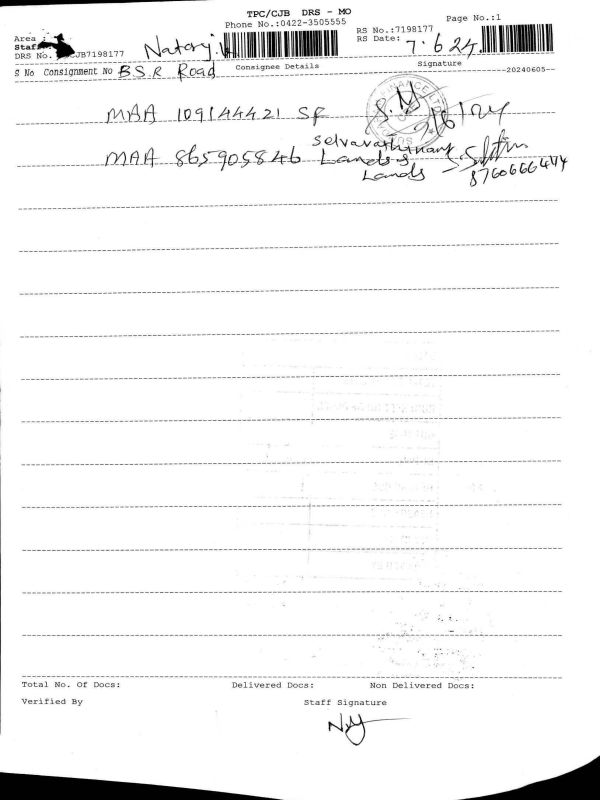 TPC/CJB DRS - MO
Phone No.:0422-3505555
Page No.:1
RS No.:7198177
RS Date: 7.6.24
Area :
Staff
DRS No. CJB7198177
S No Consignment No Consignee Details Signature
B.S.R Road
--20240605--
MAA 109144421 SF
MAA 865905846 Selvarathinam
Lands &
Lands
8760666474
Total No. Of Docs: Delivered Docs: Non Delivered Docs:
Verified By Staff Signature